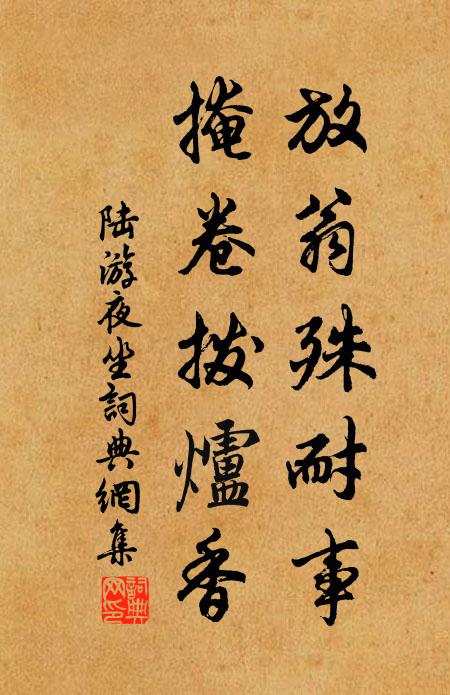 放翁殊耐事
掩卷拨爐香
陆游夜坐詞典網集
詞典
网印